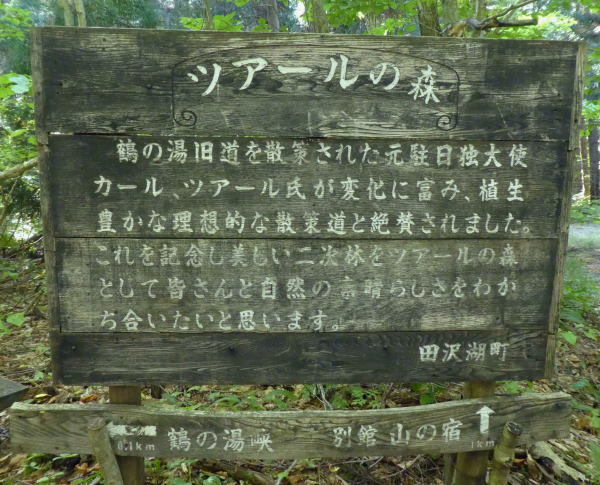 ツアールの森
鶴の湯旧道を散策された元駐日独大使
カール、ツアール氏が変化に富み、植生
豊かな理想的な散策道と絶賛されました。
これを記念し美しい二次林をツアールの森
として皆さんと自然の素晴らしさをわか
ち合いたいと思います。
田沢湖町
0.1km 鶴の湯 別館 山の宿 ↑ 1km